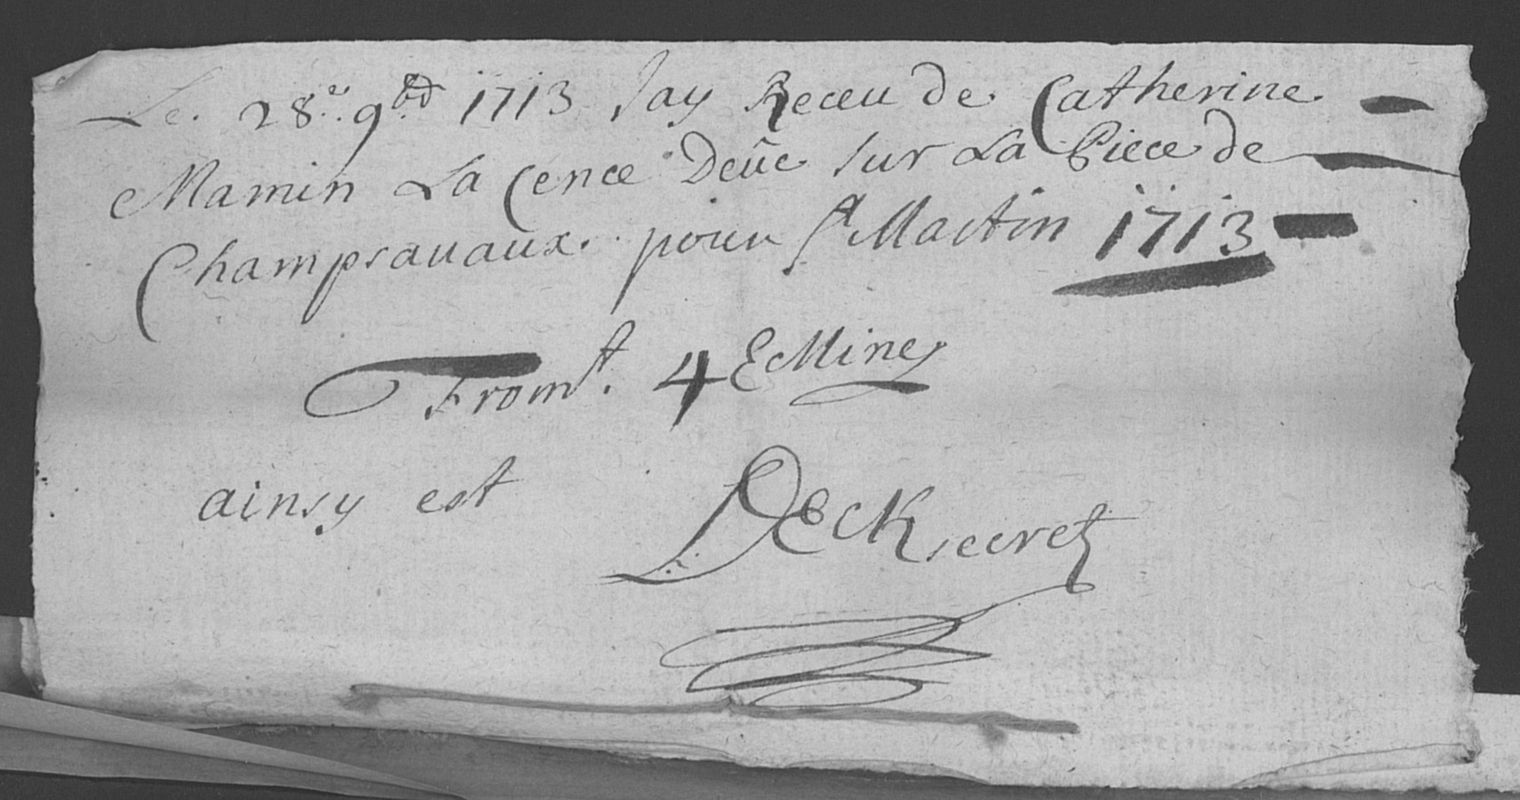 Le. 28.e 9bre 1713 Jay Receu de Catherine
Mamin La Cence Deüe sur La Piece de
Champrauaux. pour St Martin 1713
Fromt. 4 EMines
ainsy est Deck secret